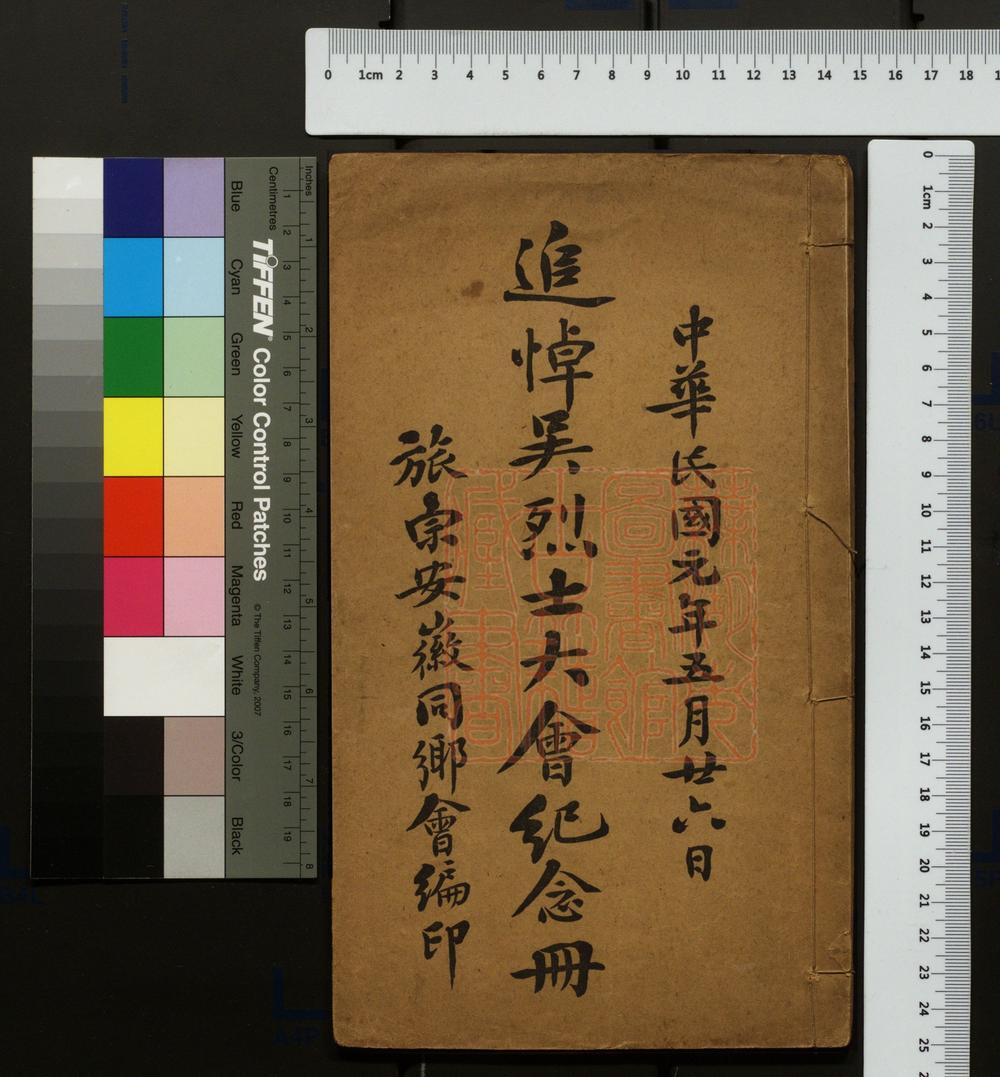 中華民國元年五月廿六日
追悼吳烈士大會紀念冊
旅京安徽同鄉會編印
0 1cm 2 3 4 5 6 7 8 9 10 11 12 13 14 15 16 17 18
0 1cm 2 3 4 5 6 7 8 9 10 11 12 13 14 15 16 17 18 19 20 21 22 23 24 25
Inches 1 2 3 4 5 6 7 8
Centimetres 1 2 3 4 5 6 7 8 9 10 11 12 13 14 15 16 17 18 19
TIFFEN® Color Control Patches © The Tiffen Company, 2007
Blue Cyan Green Yellow Red Magenta White 3/Color Black